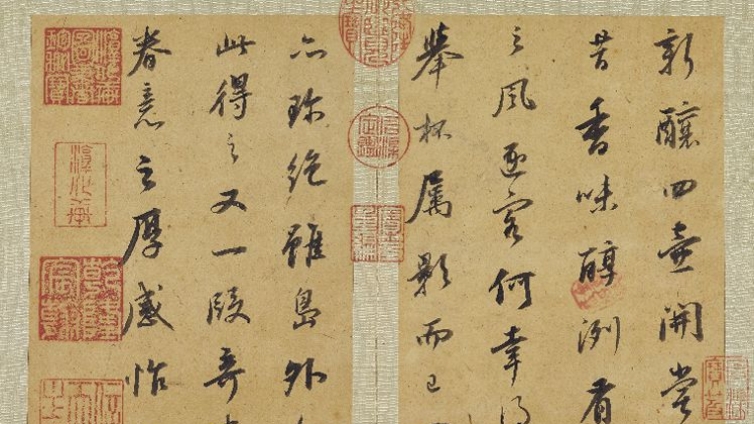 新釀四壺開嘗
昔香味醇洌有
之風逐客何幸得
舉杯屬影而已
亦珍絶雖島外
此得之又一段奇
眷意之厚感怍